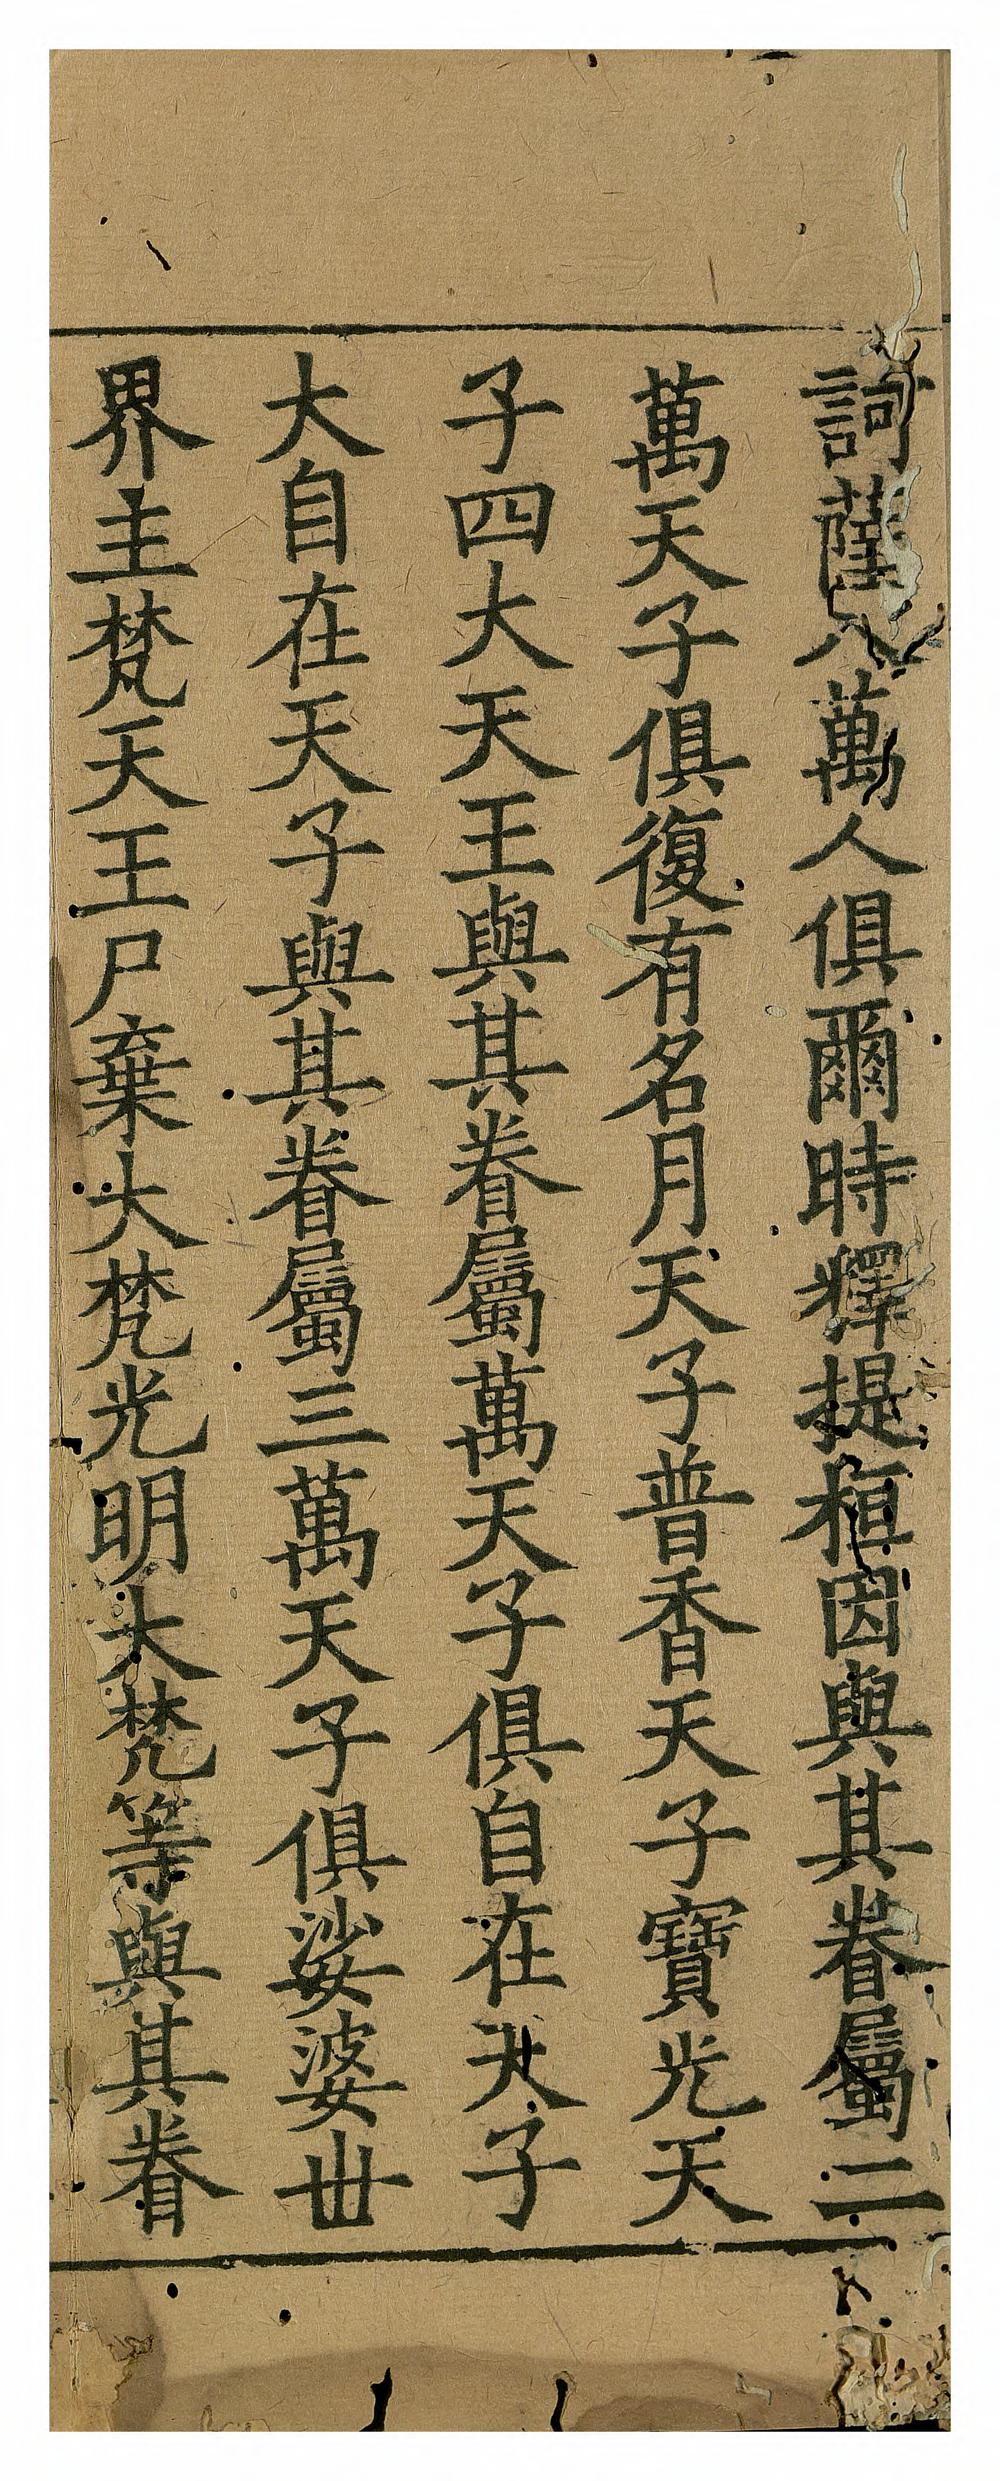 訶薩八萬人俱爾時釋提桓因與其眷屬二
萬天子俱復有名月天子普香天子寶光天
子四大天王與其眷屬萬天子俱自在天子
大自在天子與其眷屬三萬天子俱娑婆丗
界主梵天王尸棄大梵光明大梵等與其眷